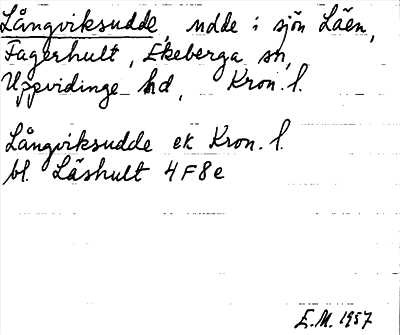 Långviksudde, udde i sjön Läen,
Fagerhult, Ekeberga sn,
Uppvidinge hd, Kron. l.
Långviksudde ek Kron. l.
bl. Läshult 4F8e
E.M. 1957